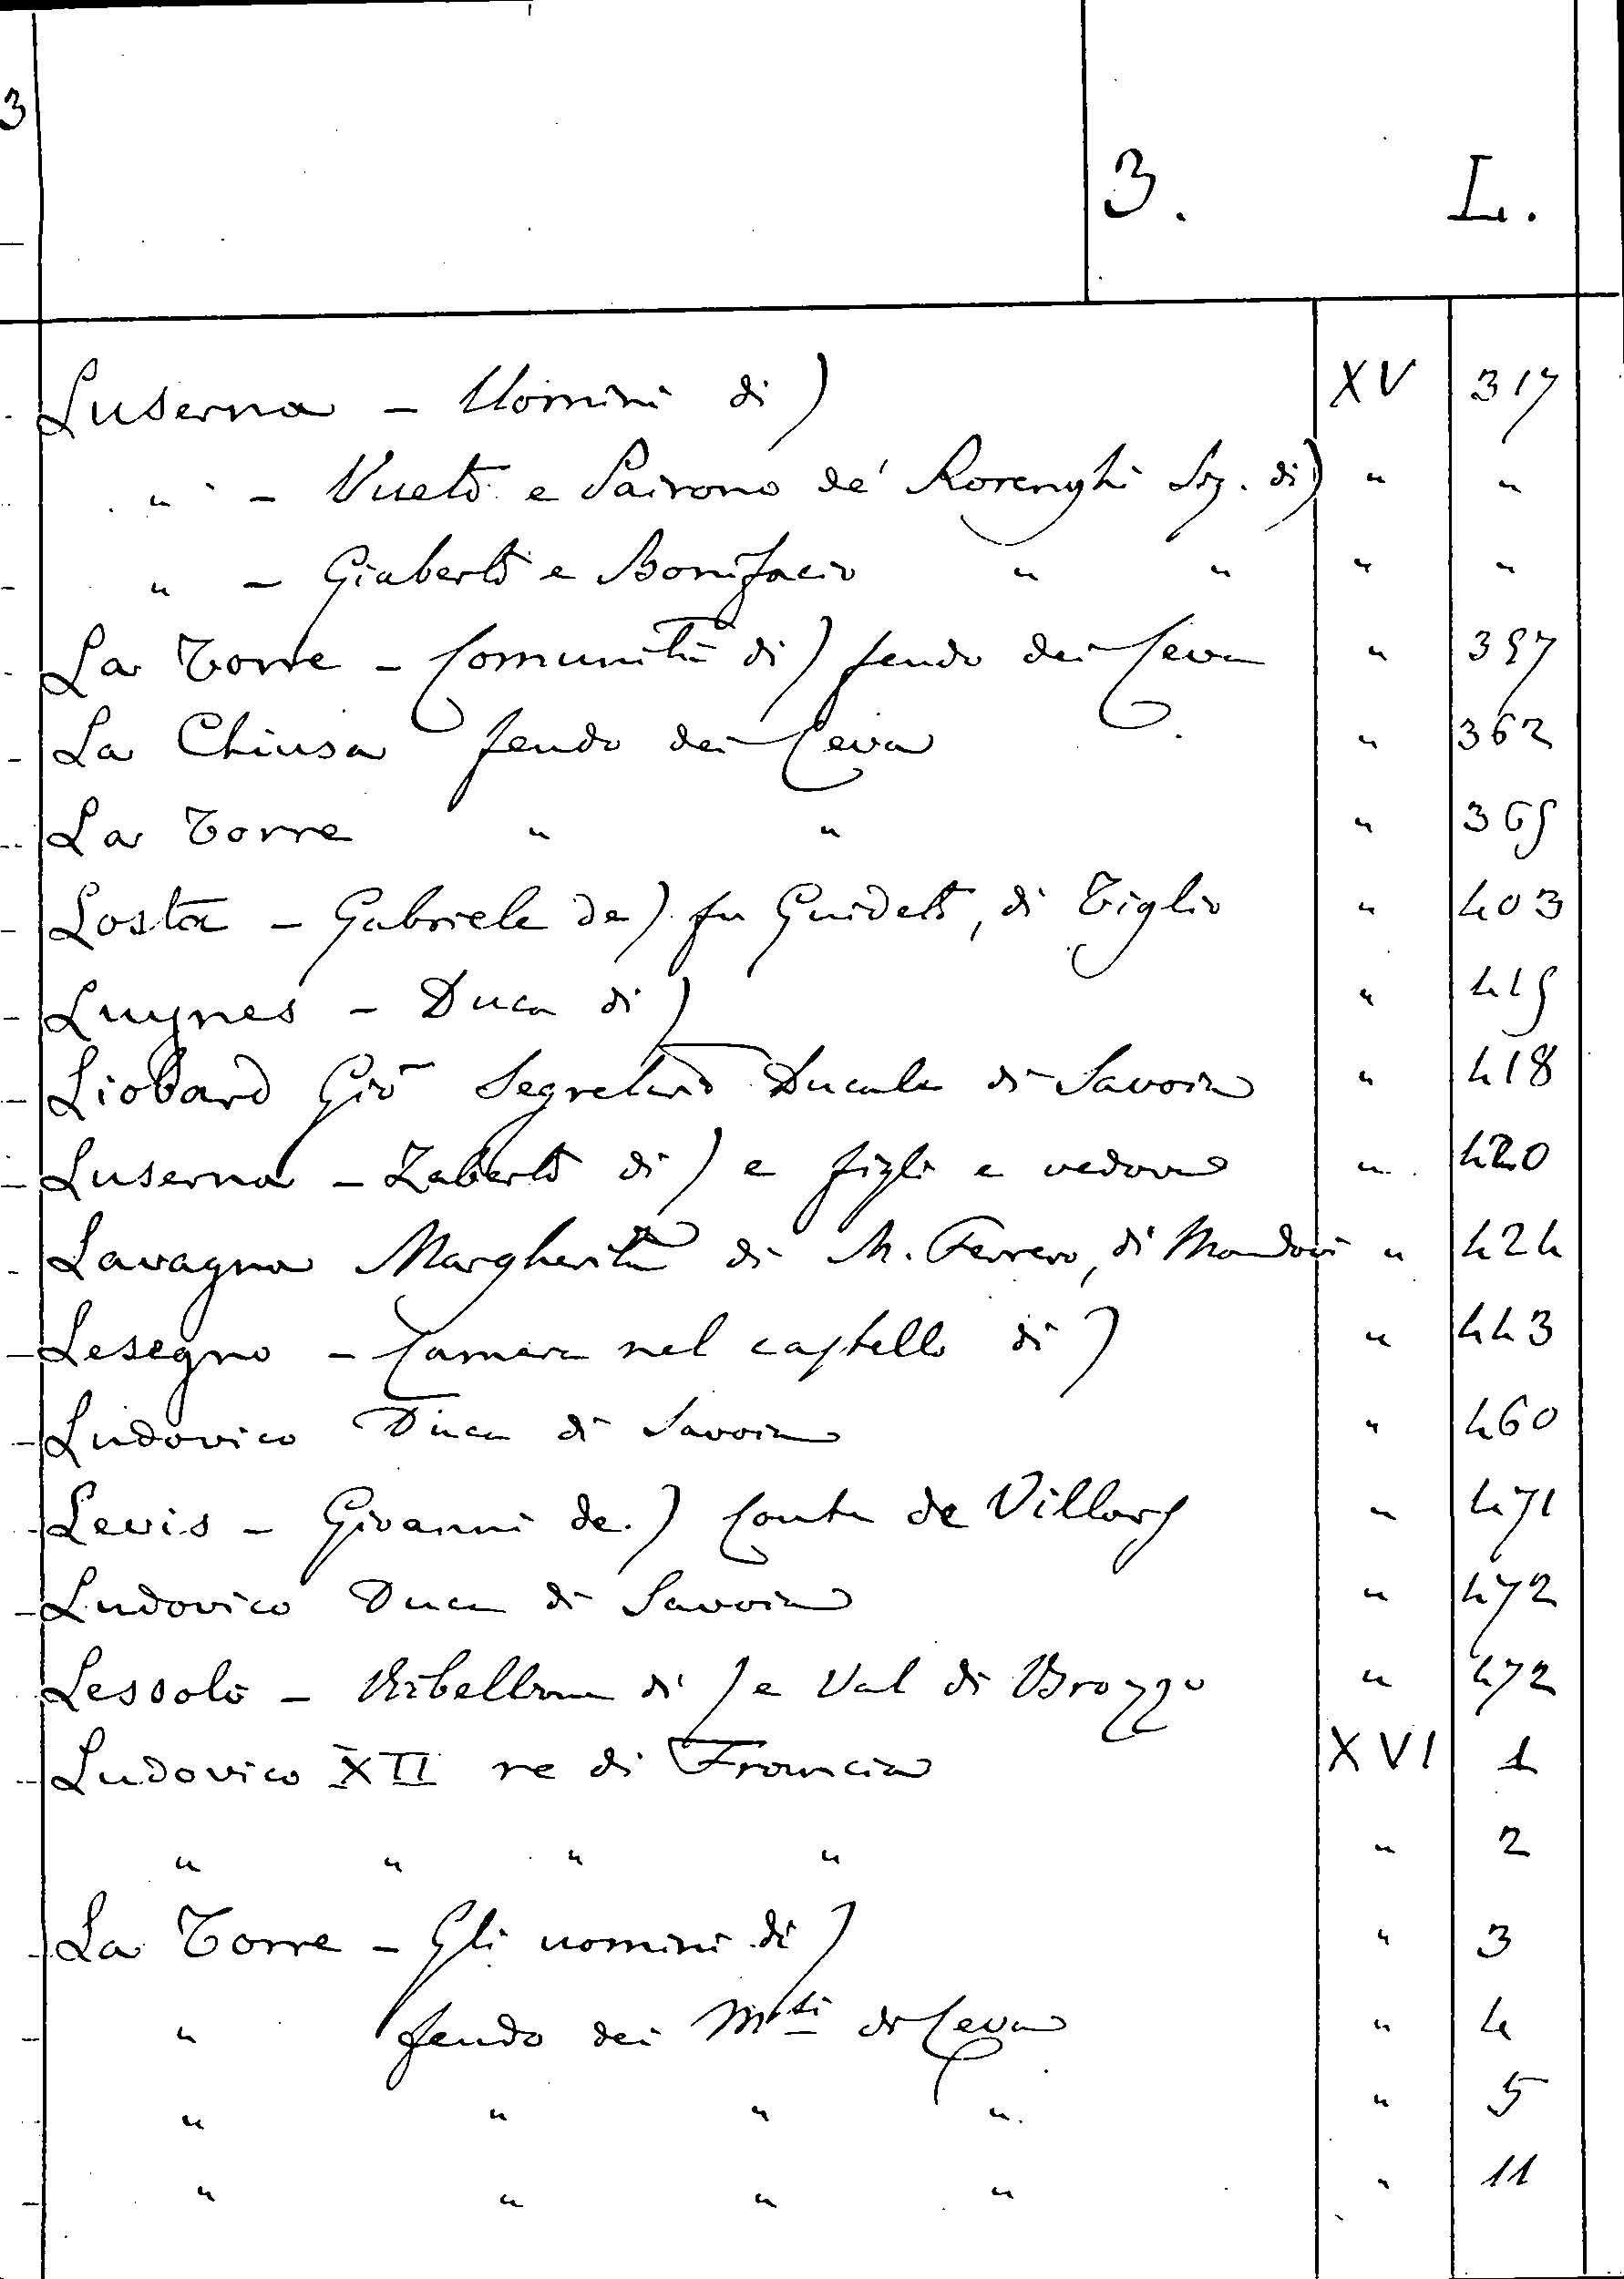 3
3. L.
Luserna - Uomini di) XV 317
" - Vueto e Pairono de' Rorenghi Sig. di) " "
" - Giaberto e Bonifacio " " " "
La Torre - Comunità di) feudo dei Ceva " 357
La Chiusa feudo dei Ceva " 362
La Torre " " " 365
Losta - Gabriele de) fu Guideto, di Tiglio " 403
Luynes - Duca di) " 415
Liobard Gio Segretario Ducale di Savoia " 418
Luserna - Zaberto di) e figli e vedova " 420
Lavagna Margherita di M. Ferrero, di Mondovi " 424
Lesegno - Camera nel castello di) " 443
Ludovico Duca di Savoia " 460
Levis - Giovanni de) Conte de Villars " 471
Ludovico Duca di Savoia " 472
Lessolo - Ribellione di) e Val di Brozzo " 472
Ludovico XII re di Francia XVI 1
" " " " " 2
La Torre - Gli uomini di) " 3
" feudo dei Msi di Ceva " 4
" " " " " 5
" " " " " 11